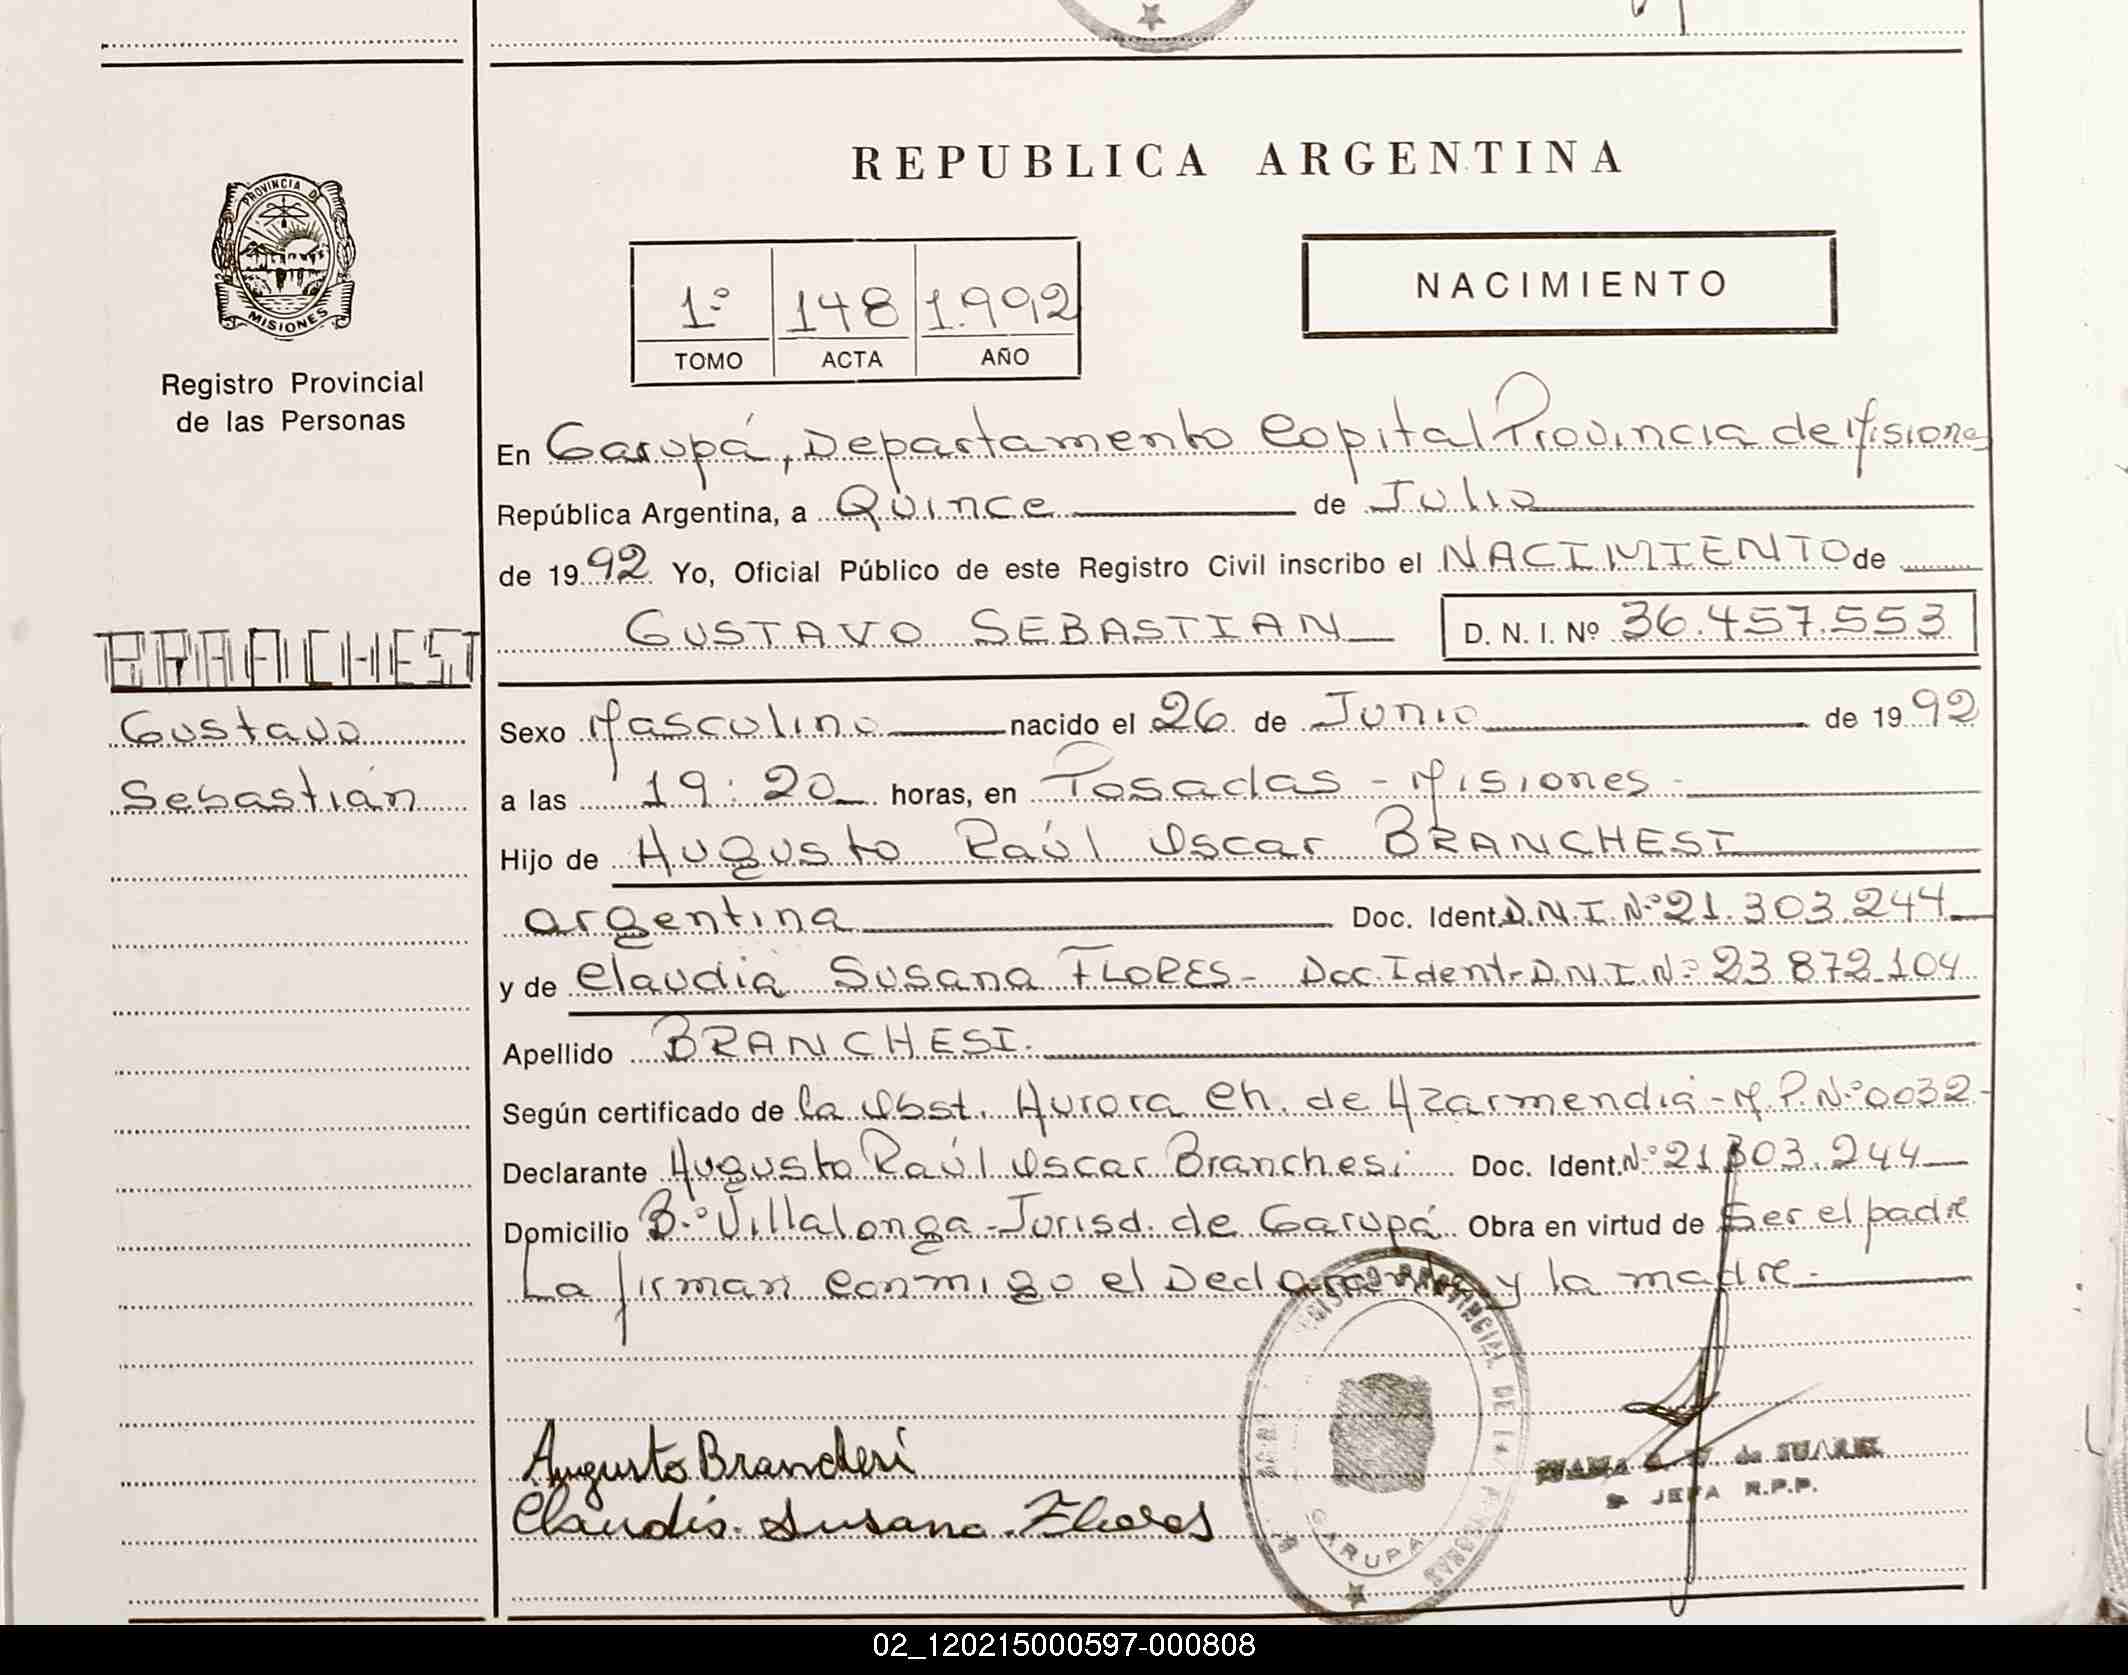 PROVINCIA DE
MISIONES
Registro Provincial
de las Personas
BRANCHESI
Gustavo
Sebastián
REPUBLICA ARGENTINA
1º 148 1.992
TOMO ACTA AÑO
NACIMIENTO
En Garupá, Departamento Capital Provincia de Misiones
República Argentina, a Quince de Julio
de 1992 Yo, Oficial Público de este Registro Civil inscribo el NACIMIENTO de
GUSTAVO SEBASTIAN D. N. I. Nº 36.457.553
Sexo Masculino nacido el 26 de Junio de 1992
a las 19:20 horas, en Posadas - Misiones -
Hijo de Augusto Raúl Oscar BRANCHESI
argentina Doc. Ident. D.N.I. Nº 21.303.244
y de Claudia Susana FLORES - Doc. Ident. D.N.I. Nº 23.872.104
Apellido BRANCHESI.
Según certificado de la Obst. Aurora Ch. de Azarmendia - M.P. Nº 0032 -
Declarante Augusto Raúl Oscar Branchesi Doc. Ident. Nº 21.303.244
Domicilio B.º Villalonga - Jurisd. de Garupá Obra en virtud de Ser el padre
La firman conmigo el Declarante y la madre.
REGISTRO PROVINCIAL DE LAS PERSONAS
GARUPA
Augusto Branchesi
Claudia Susana Flores
de SUAREZ
JEFA R.P.P.
02_120215000597-000808